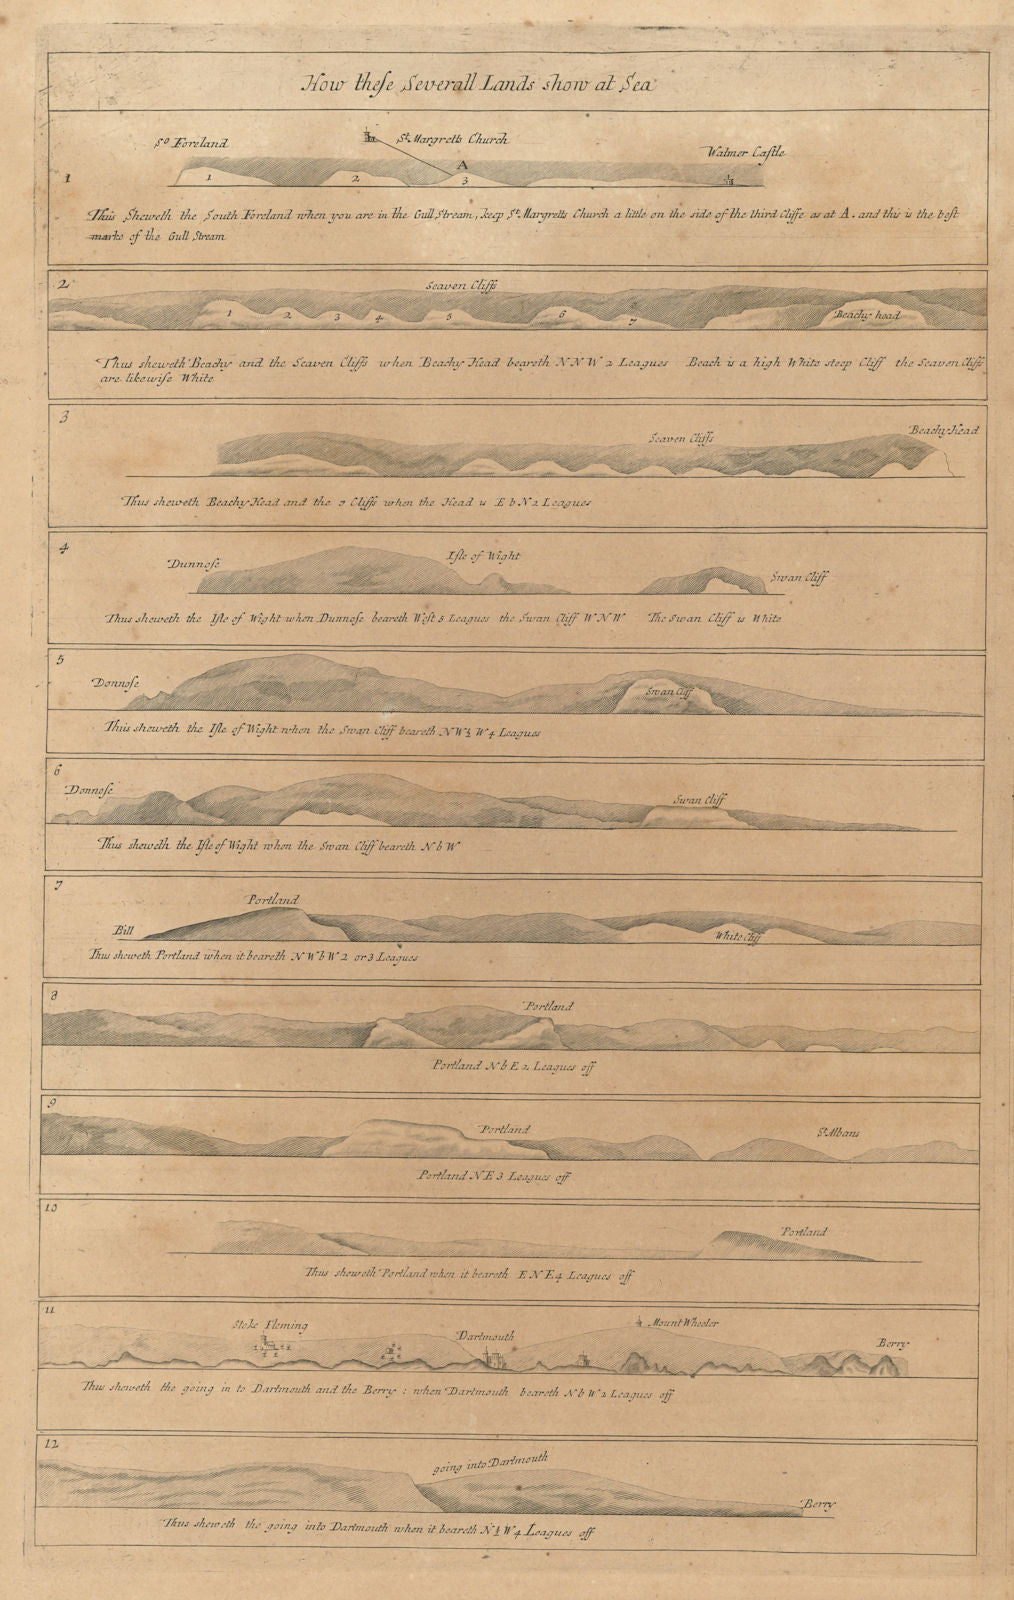 How these Severall Lands show at Sea
1
So Foreland
St. Margretts Church
Walmer Castle
A
1 2 3
Thus Sheweth the South Foreland when you are in the Gull Stream, keep St. Margretts Church a little on the side of the third Cliffe as at A. and this is the best
marke of the Gull Stream
2
Seaven Cliffs
1 2 3 4 5 6 7 8
Beachy head
Thus sheweth Beachy and the Seaven Cliffs when Beachy Head beareth N N W 2 Leagues Beach is a high White steep Cliff the Seaven Cliffs
are likewise White
3
Seaven Cliffs
Beachy Head
Thus sheweth Beachy Head and the 7 Cliffs when the Head is E b N 2 Leagues
4
Dunnose
Isle of Wight
Swan Cliff
Thus sheweth the Isle of Wight when Dunnose beareth West 5 Leagues the Swan Cliff W N W The Swan Cliff is White
5
Donnose
Swan Cliff
Thus sheweth the Isle of Wight when the Swan Cliff beareth N W ½ W 4 Leagues
6
Donnose
Swan Cliff
Thus sheweth the Isle of Wight when the Swan Cliff beareth N b W
7
Portland
Bill
White Cliff
Thus sheweth Portland when it beareth N W b W 2 or 3 Leagues
8
Portland
Portland N b E 2 Leagues off
9
Portland
St Albans
Portland N E 3 Leagues off
10
Portland
Thus sheweth Portland when it beareth E N E 4 Leagues off
11
Stoke Fleming
Dartmouth
Mount Wheeler
Berry
Thus sheweth the going in to Dartmouth and the Berry : when Dartmouth beareth N b W 2 Leagues off
12
going into Dartmouth
Berry
Thus sheweth the going into Dartmouth when it beareth N ½ W 4 Leagues off